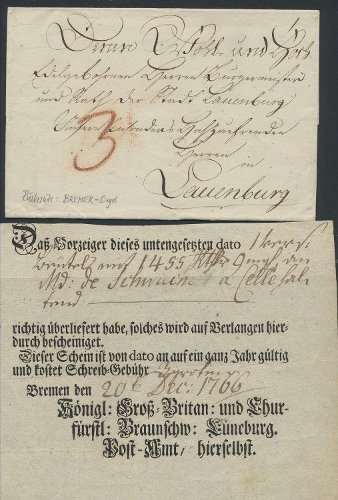 Denen Wohl- und Hoch
Edelgebohrnen Herren Bürgermeister
und Rath der Stadt Lauenburg
Herren
3
in
Lauenburg
Rückseite: BREMER-Siegel
Daß Vorzeiger dieses untengesetzten dato 1 vers:
Beutel mit 1455 an
Md: de a Celle hal
tend
richtig überliefert habe, solches wird auf Verlangen hier-
durch bescheiniget.
Dieser Schein ist von dato an auf ein ganz Jahr gültig
und kostet Schreib-Gebühr
Bremen den 20t Dec: 1766
Königl: Groß-Britan: und Chur-
fürstl: Braunschw: Lüneburg.
Post-Amt, hierselbst.